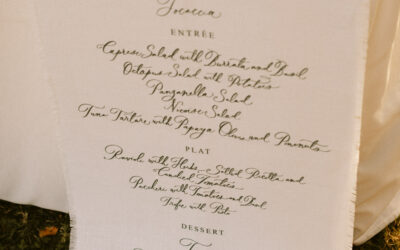 Focaccia
ENTRÉE
Caprese Salad with Burrata and Basil
Octopus Salad with Potatoes
Panzanella Salad
Nicoise Salad
Tuna Tartare with Papaya, Olives and Pinenuts
PLAT
Ravioli with Herbs, Salted Ricotta and
Candied Tomatoes
Paccheri with Tomatoes and Basil
Trofie with Pesto
DESSERT